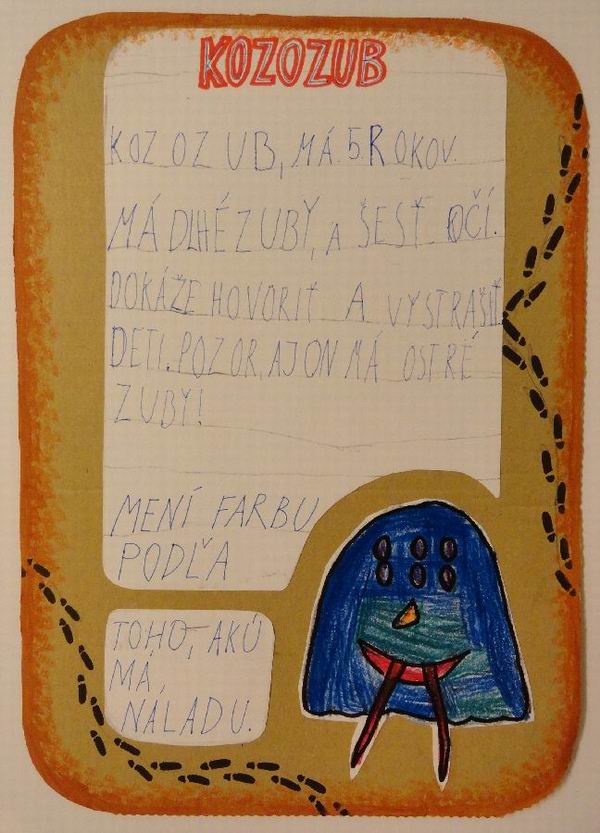 KOZOZUB
KOZOZUB, MÁ 5 ROKOV.
MÁ DLHÉ ZUBY, A ŠESŤ OČÍ.
DOKÁŽE HOVORIŤ A VYSTRAŠIŤ
DETI. POZOR, AJ ON MÁ OSTRÉ
ZUBY!
MENÍ FARBU
PODĽA
TOHO, AKÚ
MÁ,
NALADU.